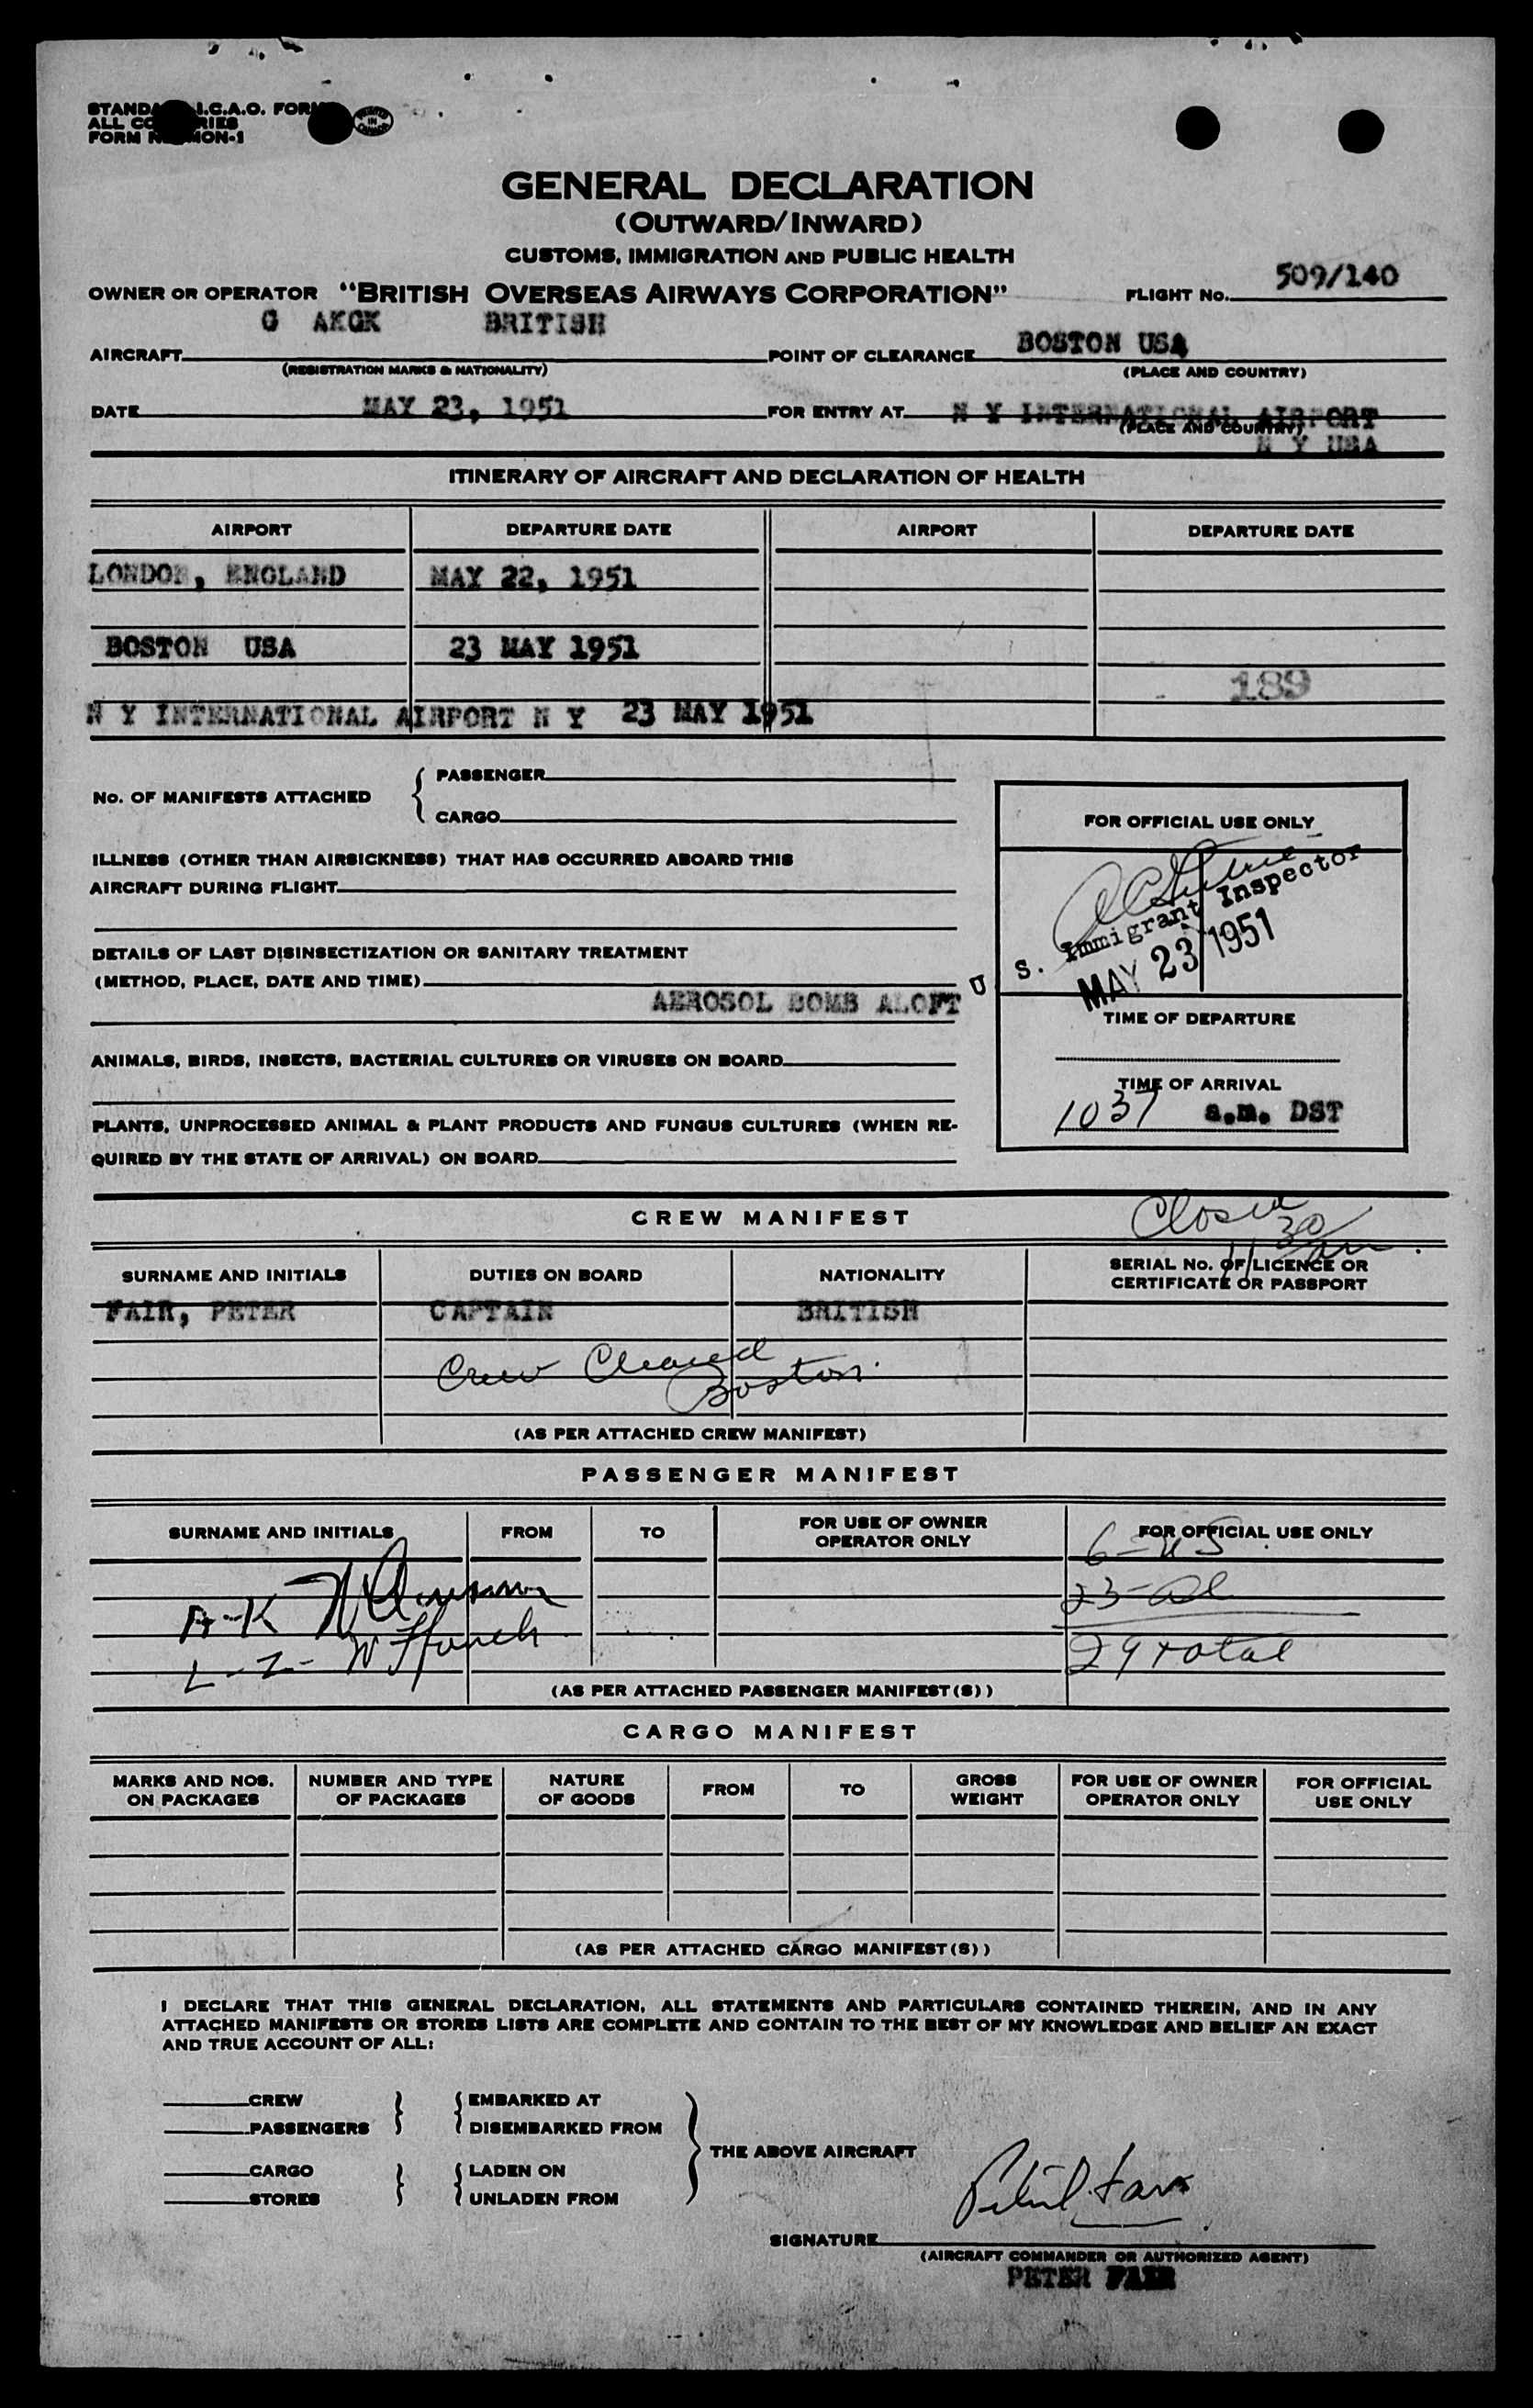 STANDA I.C.A.O. FORM
ALL CO RIES
FORM N MON-1
GENERAL DECLARATION
(OUTWARD/INWARD)
CUSTOMS, IMMIGRATION AND PUBLIC HEALTH
509/140
OWNER OR OPERATOR "BRITISH OVERSEAS AIRWAYS CORPORATION" FLIGHT No.
G AKGK BRITISH
AIRCRAFT POINT OF CLEARANCE BOSTON USA
(REGISTRATION MARKS & NATIONALITY) (PLACE AND COUNTRY)
DATE MAY 23, 1951 FOR ENTRY AT N Y INTERNATIONAL AIRPORT
(PLACE AND COUNTRY)
N Y USA
ITINERARY OF AIRCRAFT AND DECLARATION OF HEALTH
AIRPORT DEPARTURE DATE AIRPORT DEPARTURE DATE
LONDON, ENGLAND MAY 22, 1951
BOSTON USA 23 MAY 1951
189
N Y INTERNATIONAL AIRPORT N Y 23 MAY 1951
No. OF MANIFESTS ATTACHED
PASSENGER
CARGO
ILLNESS (OTHER THAN AIRSICKNESS) THAT HAS OCCURRED ABOARD THIS
AIRCRAFT DURING FLIGHT
DETAILS OF LAST DISINSECTIZATION OR SANITARY TREATMENT
(METHOD, PLACE, DATE AND TIME)
AEROSOL BOMB ALOFT
ANIMALS, BIRDS, INSECTS, BACTERIAL CULTURES OR VIRUSES ON BOARD
PLANTS, UNPROCESSED ANIMAL & PLANT PRODUCTS AND FUNGUS CULTURES (WHEN RE-
QUIRED BY THE STATE OF ARRIVAL) ON BOARD
FOR OFFICIAL USE ONLY
U S. Immigrant Inspector
MAY 23 1951
TIME OF DEPARTURE
TIME OF ARRIVAL
1037 a.m. DST
CREW MANIFEST
Closed
11 30 am
SURNAME AND INITIALS DUTIES ON BOARD NATIONALITY SERIAL No. OF LICENCE OR
CERTIFICATE OR PASSPORT
FAIR, PETER CAPTAIN BRITISH
Crew Cleared
Boston.
(AS PER ATTACHED CREW MANIFEST)
PASSENGER MANIFEST
SURNAME AND INITIALS FROM TO FOR USE OF OWNER
OPERATOR ONLY FOR OFFICIAL USE ONLY
6 - US
23 - al
A-K
29 total
L-Z-
(AS PER ATTACHED PASSENGER MANIFEST(S))
CARGO MANIFEST
MARKS AND NOS.
ON PACKAGES NUMBER AND TYPE
OF PACKAGES NATURE
OF GOODS FROM TO GROSS
WEIGHT FOR USE OF OWNER
OPERATOR ONLY FOR OFFICIAL
USE ONLY
(AS PER ATTACHED CARGO MANIFEST(S))
I DECLARE THAT THIS GENERAL DECLARATION, ALL STATEMENTS AND PARTICULARS CONTAINED THEREIN, AND IN ANY
ATTACHED MANIFESTS OR STORES LISTS ARE COMPLETE AND CONTAIN TO THE BEST OF MY KNOWLEDGE AND BELIEF AN EXACT
AND TRUE ACCOUNT OF ALL:
CREW EMBARKED AT
PASSENGERS DISEMBARKED FROM
THE ABOVE AIRCRAFT
CARGO LADEN ON
STORES UNLADEN FROM
SIGNATURE
(AIRCRAFT COMMANDER OR AUTHORIZED AGENT)
PETER FAIR